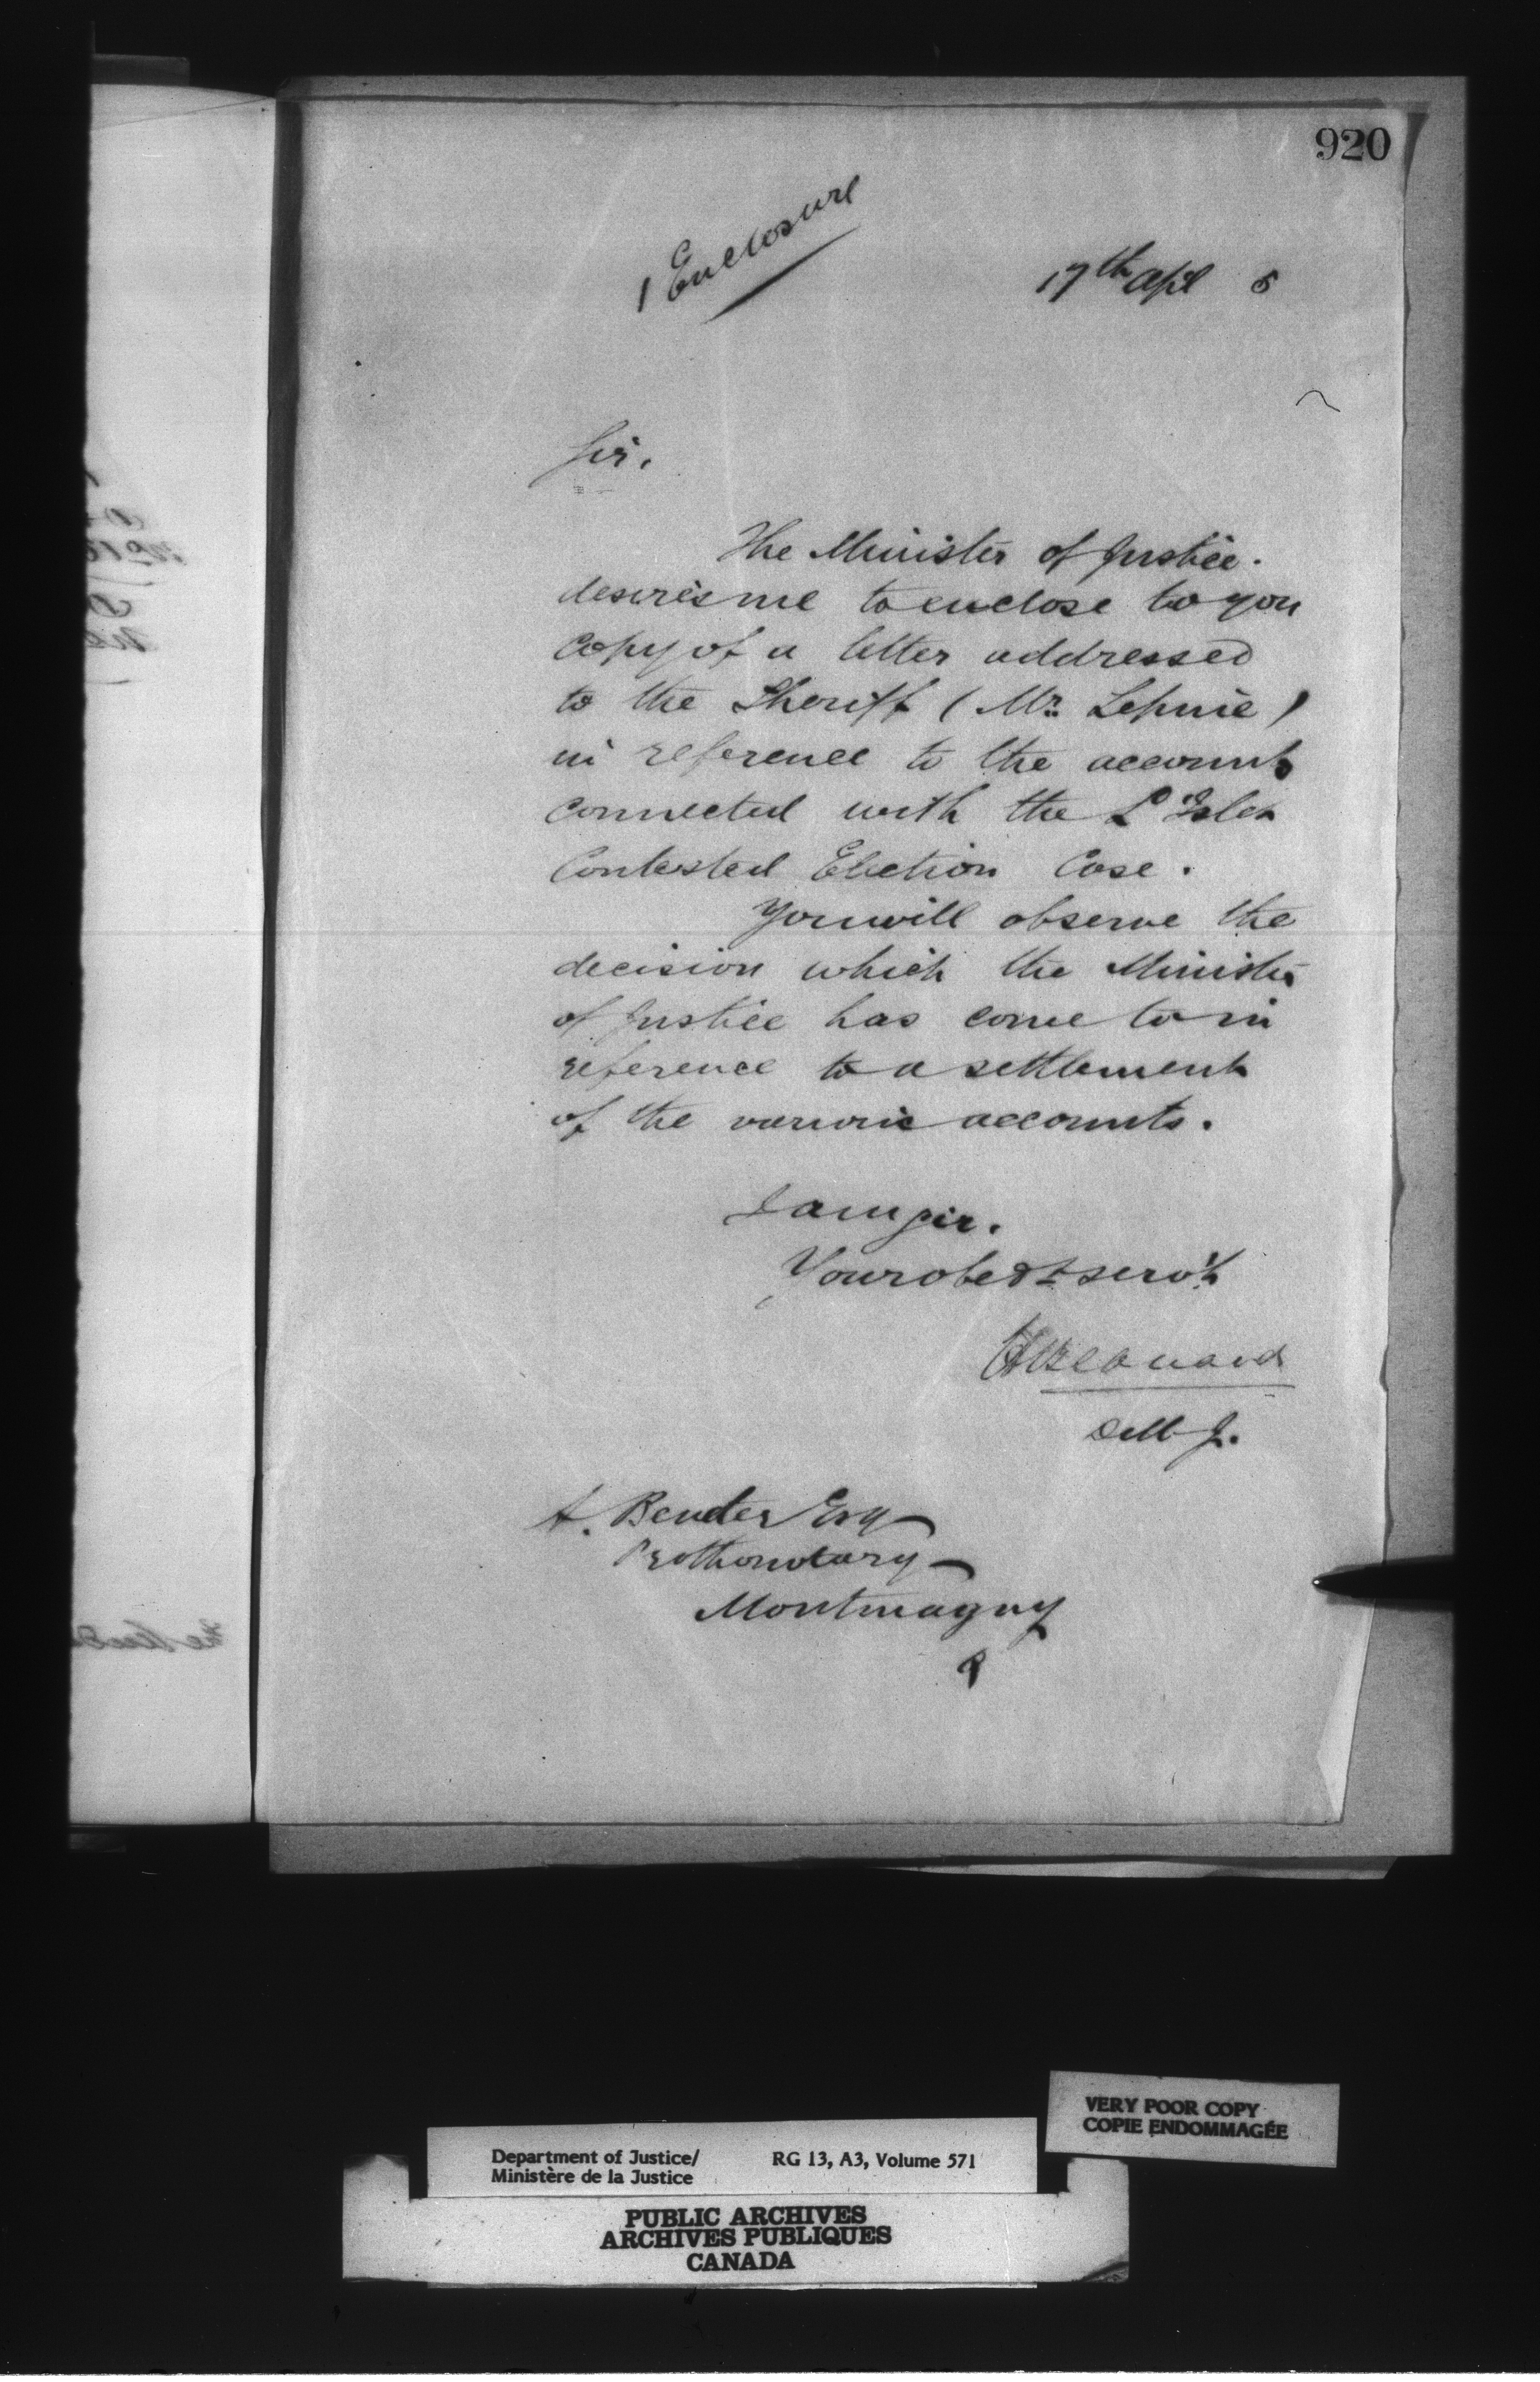 920
1 Enclosure
17th Apl 5
Sir.
The Minister of Justice.
desires me to enclose to you
copy of a letter addressed
to the Sheriff (Mr. Lepine)
in reference to the accounts
connected with the L'Islet
Contested Election Case.
You will observe the
decision which the Minister
of Justice has come to in
reference to a settlement
of the various accounts.
I am sir.
Your obedt servt
D M J.
A. Bender Esq
Prothonotary
Montmagny
VERY POOR COPY
COPIE ENDOMMAGÉE
Department of Justice/ RG 13, A3, Volume 571
Ministère de la Justice
PUBLIC ARCHIVES
ARCHIVES PUBLIQUES
CANADA